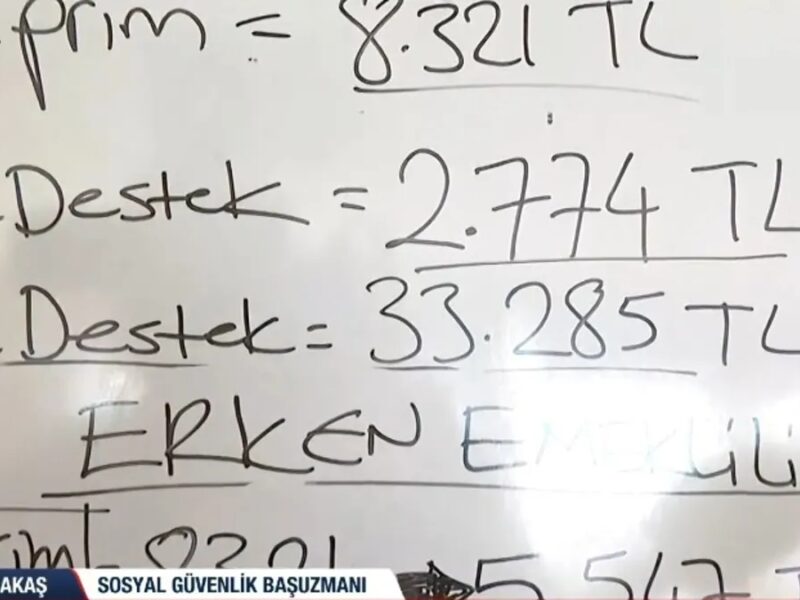 prim = 8.321 TL
Destek = 2.774 TL
Destek = 33.285 TL
ERKEN EMEKLİLİ
8321 → 5.547 T
AKAŞ SOSYAL GÜVENLİK BAŞUZMANI